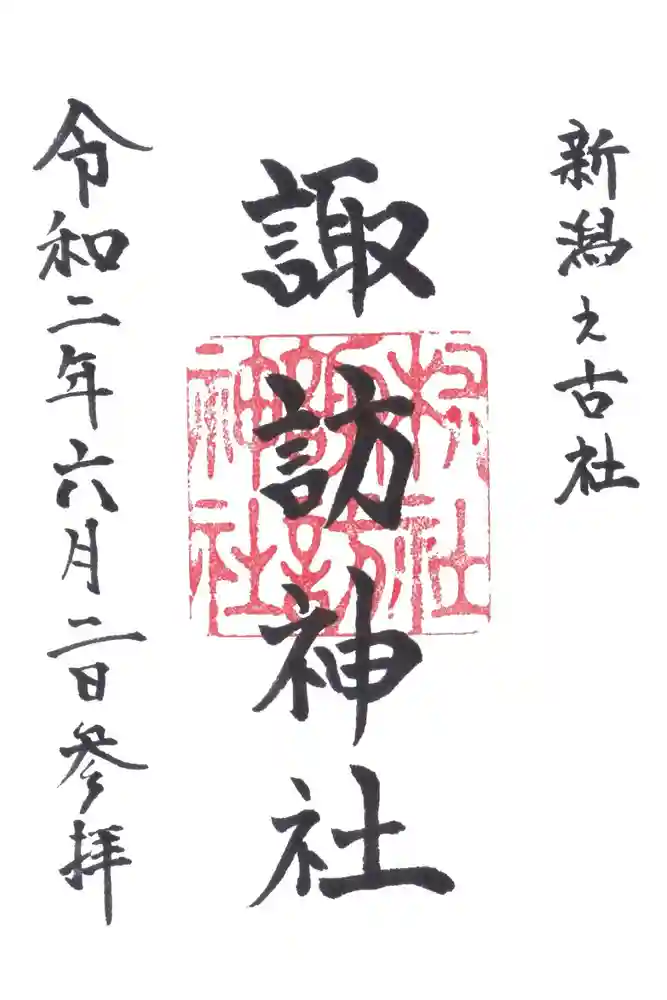 新潟之古社
諏訪神社
令和二年六月二日参拝